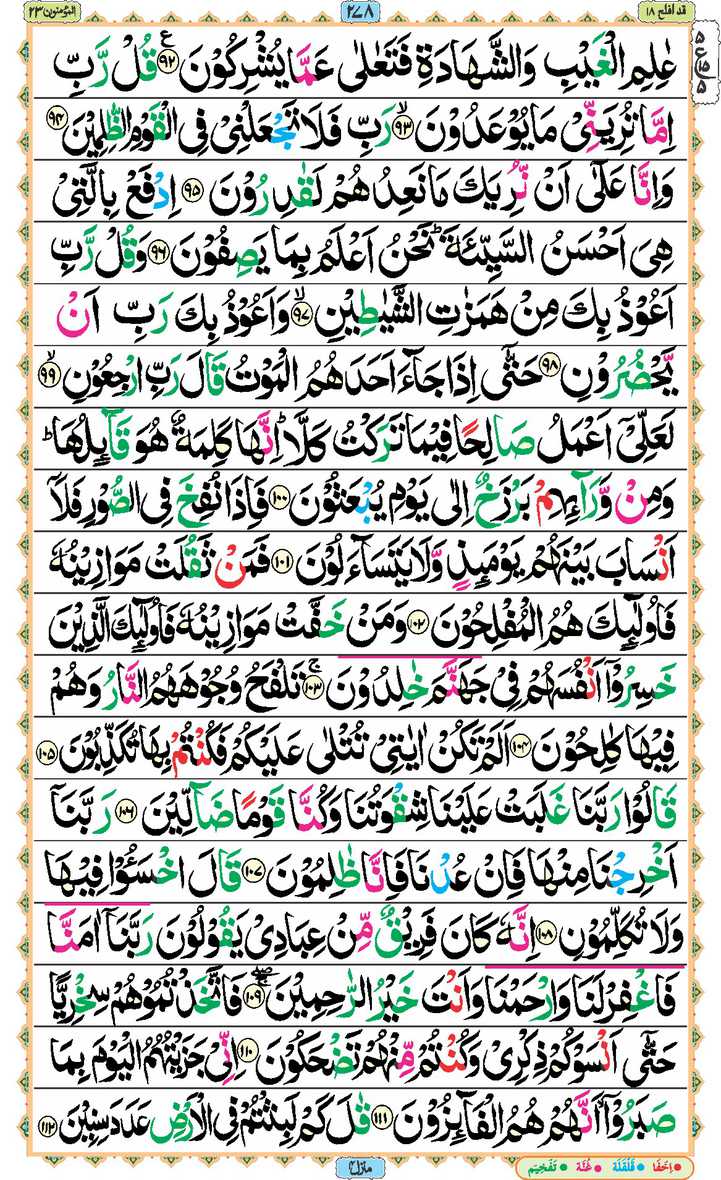 قد افلح ۱۸
۲۷۸
المؤمنون ۲۳
عٰلِمِ الْغَيْبِ وَالشَّهَادَةِ فَتَعٰلٰى عَمَّا يُشْرِكُوْنَ ﴿۹۲﴾ قُلْ رَّبِّ
اِمَّا تُرِيَنِّىْ مَا يُوْعَدُوْنَ ﴿۹۳﴾ رَبِّ فَلَا تَجْعَلْنِىْ فِى الْقَوْمِ الظّٰلِمِيْنَ ﴿۹۴﴾
وَاِنَّا عَلٰٓى اَنْ نُّرِيَكَ مَا نَعِدُهُمْ لَقٰدِرُوْنَ ﴿۹۵﴾ اِدْفَعْ بِالَّتِىْ
هِىَ اَحْسَنُ السَّيِّئَةَ ؕ نَحْنُ اَعْلَمُ بِمَا يَصِفُوْنَ ﴿۹۶﴾ وَقُلْ رَّبِّ
اَعُوْذُ بِكَ مِنْ هَمَزٰتِ الشَّيٰطِيْنِ ﴿۹۷﴾ وَاَعُوْذُ بِكَ رَبِّ اَنْ
يَّحْضُرُوْنِ ﴿۹۸﴾ حَتّٰٓى اِذَا جَآءَ اَحَدَهُمُ الْمَوْتُ قَالَ رَبِّ ارْجِعُوْنِ ﴿۹۹﴾
لَعَلِّىْٓ اَعْمَلُ صَالِحًا فِيْمَا تَرَكْتُ كَلَّا ؕ اِنَّهَا كَلِمَةٌ هُوَ قَآئِلُهَا ؕ
وَمِنْ وَّرَآئِهِمْ بَرْزَخٌ اِلٰى يَوْمِ يُبْعَثُوْنَ ﴿۱۰۰﴾ فَاِذَا نُفِخَ فِى الصُّوْرِ فَلَآ
اَنْسَابَ بَيْنَهُمْ يَوْمَئِذٍ وَّلَا يَتَسَآءَلُوْنَ ﴿۱۰۱﴾ فَمَنْ ثَقُلَتْ مَوَازِيْنُهٗ
فَاُولٰٓئِكَ هُمُ الْمُفْلِحُوْنَ ﴿۱۰۲﴾ وَمَنْ خَفَّتْ مَوَازِيْنُهٗ فَاُولٰٓئِكَ الَّذِيْنَ
خَسِرُوْٓا اَنْفُسَهُمْ فِىْ جَهَنَّمَ خٰلِدُوْنَ ﴿۱۰۳﴾ تَلْفَحُ وُجُوْهَهُمُ النَّارُ وَهُمْ
فِيْهَا كٰلِحُوْنَ ﴿۱۰۴﴾ اَلَمْ تَكُنْ اٰيٰتِىْ تُتْلٰى عَلَيْكُمْ فَكُنْتُمْ بِهَا تُكَذِّبُوْنَ ﴿۱۰۵﴾
قَالُوْا رَبَّنَا غَلَبَتْ عَلَيْنَا شِقْوَتُنَا وَكُنَّا قَوْمًا ضَآلِّيْنَ ﴿۱۰۶﴾ رَبَّنَآ
اَخْرِجْنَا مِنْهَا فَاِنْ عُدْنَا فَاِنَّا ظٰلِمُوْنَ ﴿۱۰۷﴾ قَالَ اخْسَئُوْا فِيْهَا
وَلَا تُكَلِّمُوْنِ ﴿۱۰۸﴾ اِنَّهٗ كَانَ فَرِيْقٌ مِّنْ عِبَادِىْ يَقُوْلُوْنَ رَبَّنَآ اٰمَنَّا
فَاغْفِرْ لَنَا وَارْحَمْنَا وَاَنْتَ خَيْرُ الرّٰحِمِيْنَ ﴿۱۰۹﴾ فَاتَّخَذْتُمُوْهُمْ سِخْرِيًّا
حَتّٰٓى اَنْسَوْكُمْ ذِكْرِىْ وَكُنْتُمْ مِّنْهُمْ تَضْحَكُوْنَ ﴿۱۱۰﴾ اِنِّىْ جَزَيْتُهُمُ الْيَوْمَ بِمَا
صَبَرُوْٓا اَنَّهُمْ هُمُ الْفَآئِزُوْنَ ﴿۱۱۱﴾ قٰلَ كَمْ لَبِثْتُمْ فِى الْاَرْضِ عَدَدَ سِنِيْنَ ﴿۱۱۲﴾
منزل ۴
اِخفَا قَلْقَلَه غُنَّه تَفْخِيْم